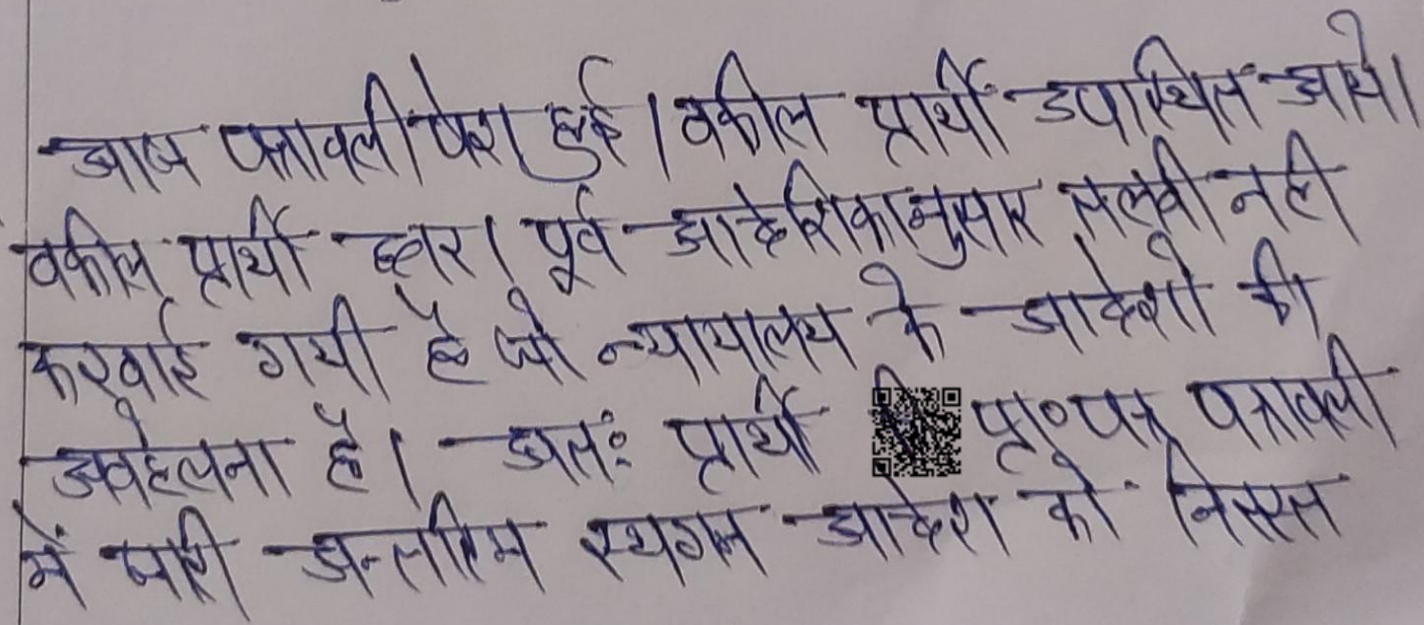 आज पत्रावली पेश हुई। वकील प्रार्थी उपस्थित आये।
वकील प्रार्थी द्वारा पूर्व आदेशिकानुसार तलवी नही
करवाई गयी है जो न्यायालय के आदेशो की
अवहेलना है। अतः प्रार्थी प्रा०पत्र पत्रावली
में जारी अन्तरिम स्थगन आदेश को निरस्त